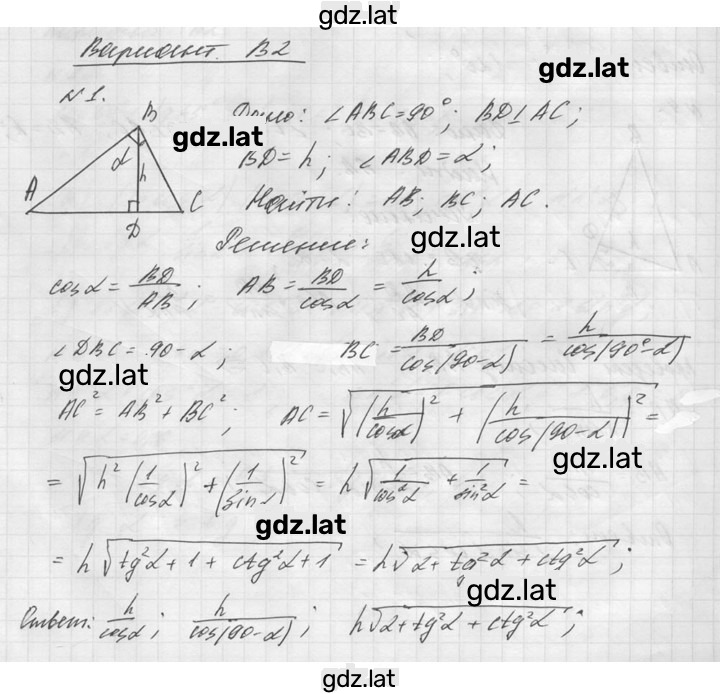 gdz.lat
Вариант. В2
gdz.lat
№1.
Дано: ∠ABC=90°; BD⊥AC;
gdz.lat
BD=h; ∠ABD=α;
Найти: AB; BC; AC.
B
α
h
A
C
D
Решение:
gdz.lat
cosα = BD/AB; AB = BD/cosα = h/cosα;
∠DBC = 90-α; BC = BD/cos(90-α) = h/cos(90°-α)
gdz.lat
AC² = AB² + BC²; AC = √((h/cosα)² + (h/cos(90-α))²) =
gdz.lat
= √(h²(1/cosα)² + (1/sinα)²) = h√(1/cos²α + 1/sin²α) =
gdz.lat
= h√(tg²α + 1 + ctg²α + 1) = h√(2 + tg²α + ctg²α);
gdz.lat
Ответ: h/cosα; h/cos(90-α); h√(2 + tg²α + ctg²α);
gdz.lat